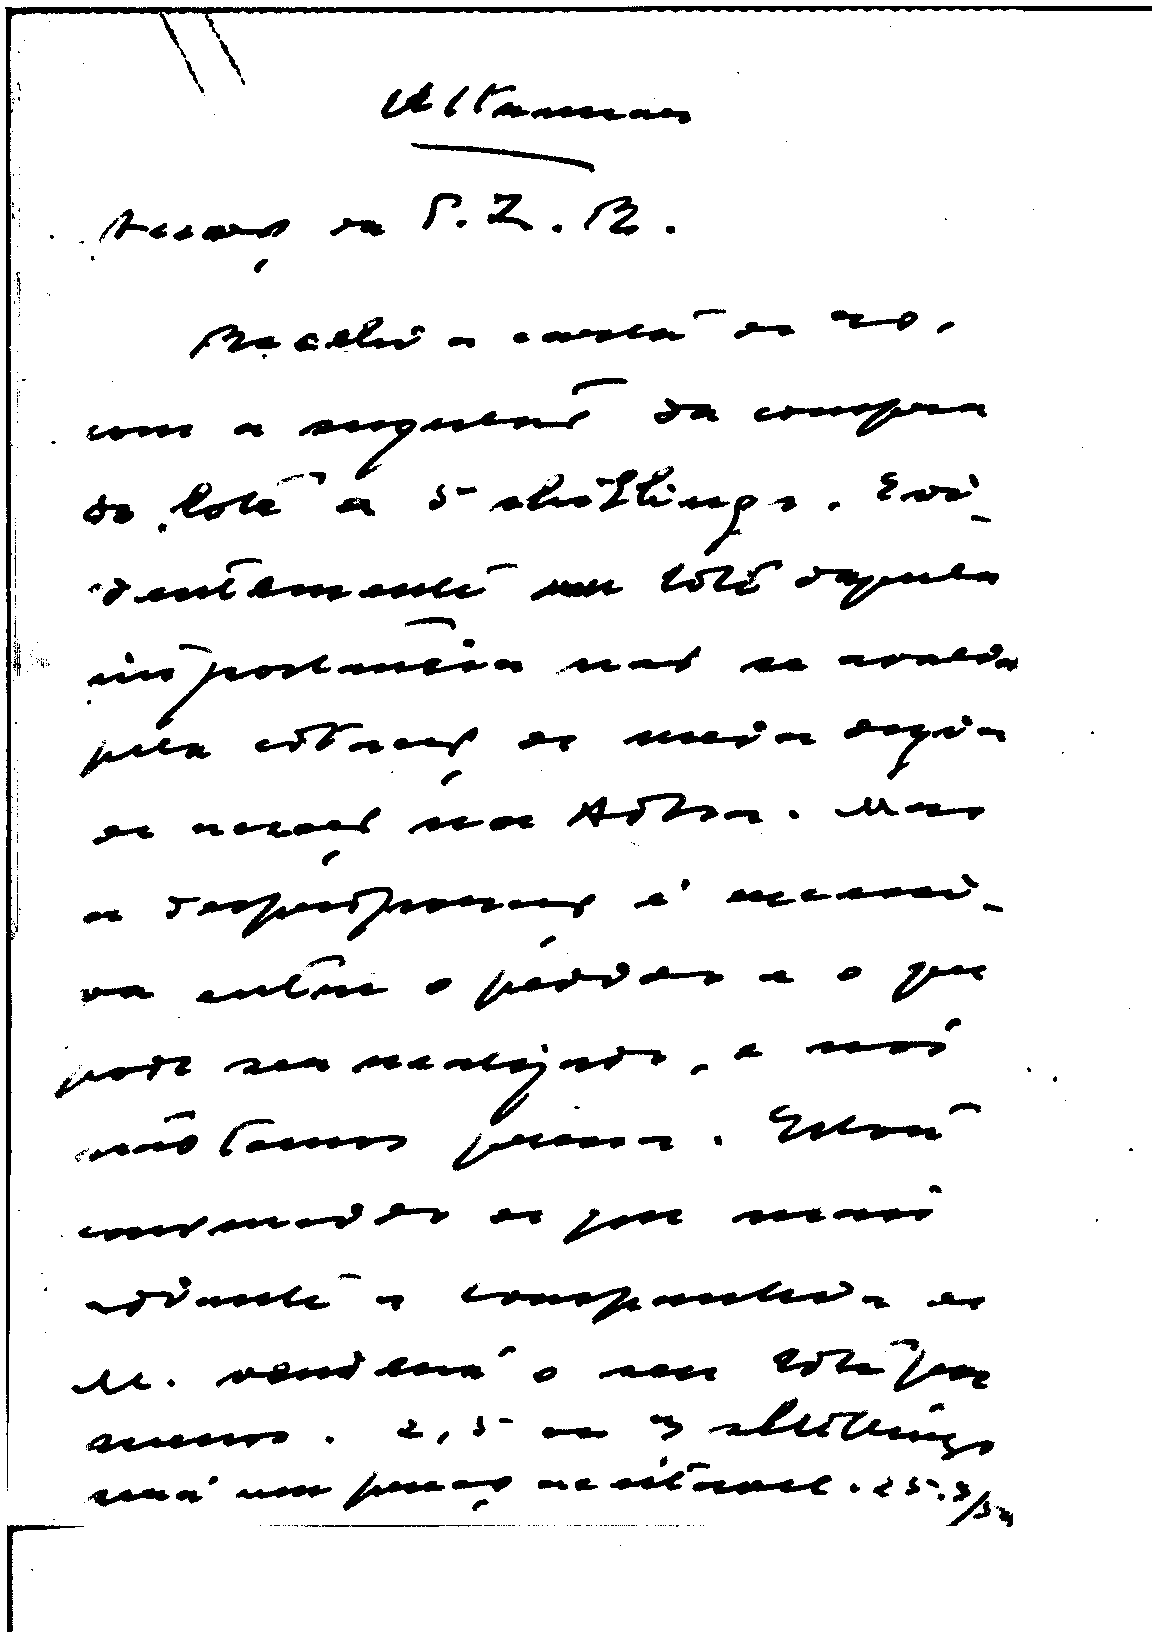 Altamiro
Acções da P. Z. R.
Recebi a carta de 20,
com a sugestão da compra
do lote a 5 shillings. Evi-
dentemente um lote daquela
importancia não se avalia
pela cotação de meia duzia
de acções na Bolsa. Mas
a desproporção é excessi-
va entre o pedido e o que
pode ser realizado, e nós
não temos pressa. Estou
convencido de que mais
adiante a companhia de
M. venderá o seu lote por
menos. 2,5 ou 3 shillings
será um preço aceitavel. 25.3/